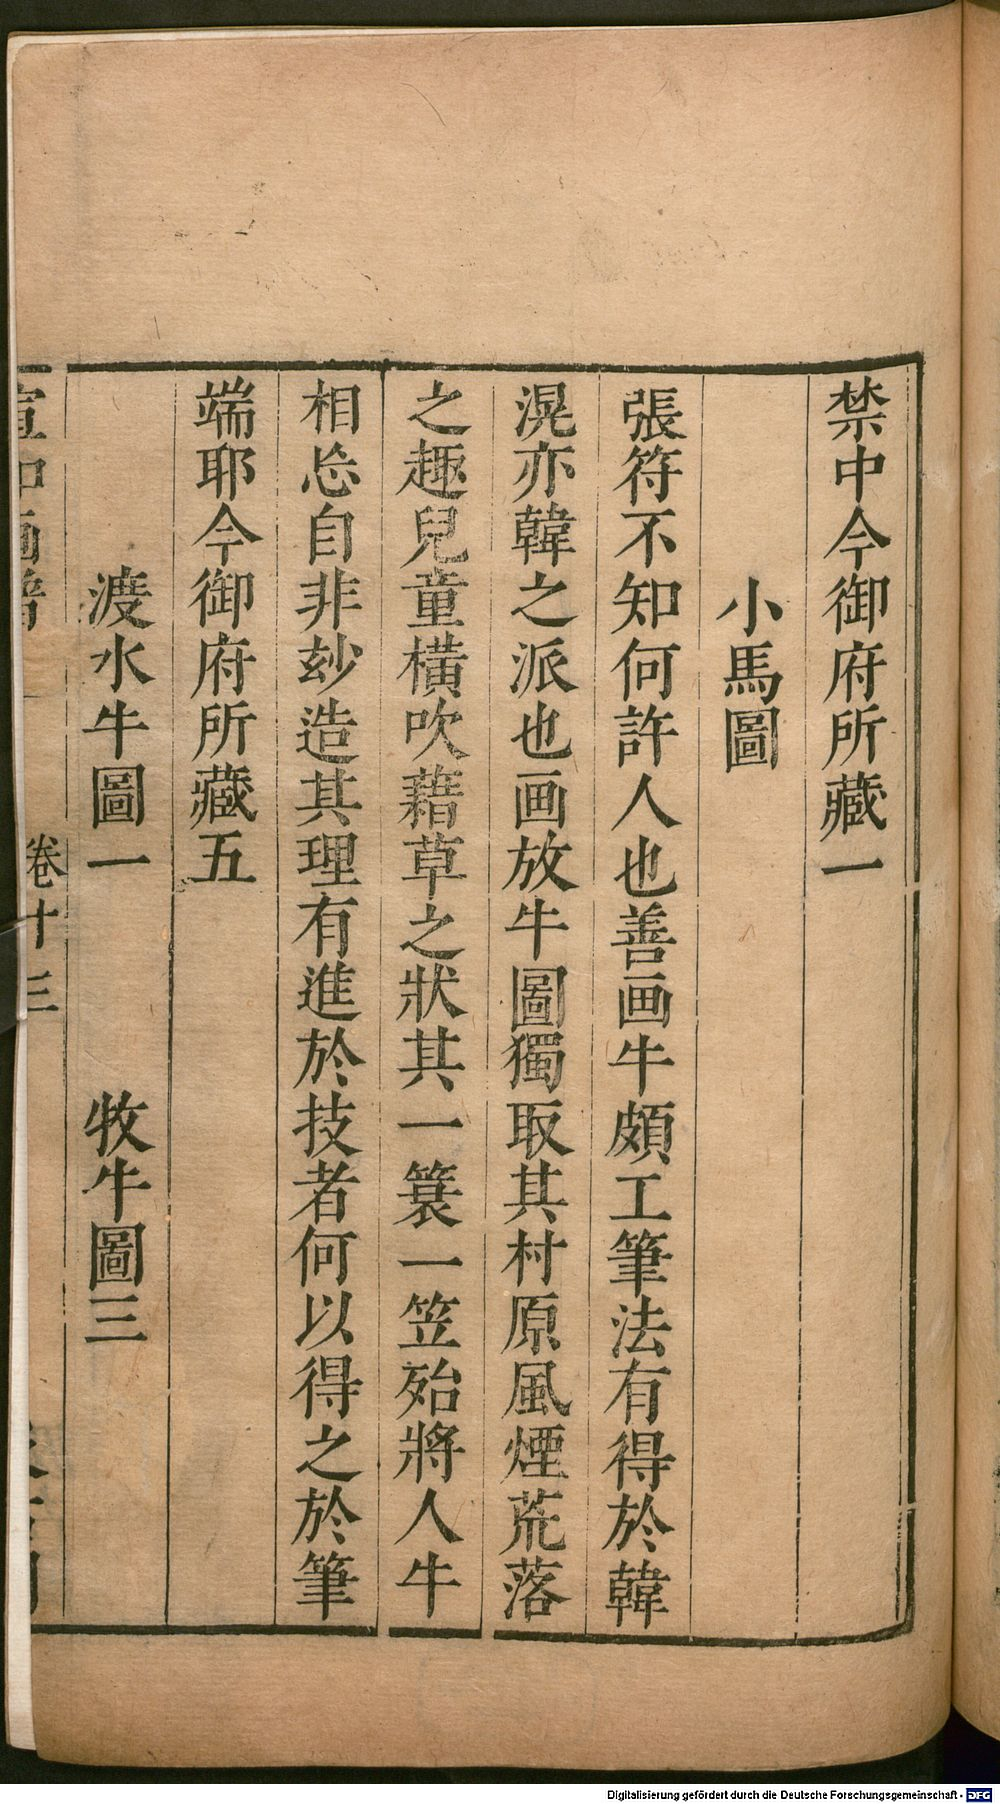 禁中今御府所藏一
小馬圖
張符不知何許人也善画牛頗工筆法有得於韓
滉亦韓之派也画放牛圖獨取其村原風煙荒落
之趣兒童橫吹藉草之狀其一簑一笠殆將人牛
相忘自非玅造其理有進於技者何以得之於筆
端耶今御府所藏五
渡水牛圖一 牧牛圖三
宣和画譜 卷十三
Digitalisierung gefördert durch die Deutsche Forschungsgemeinschaft - DFG